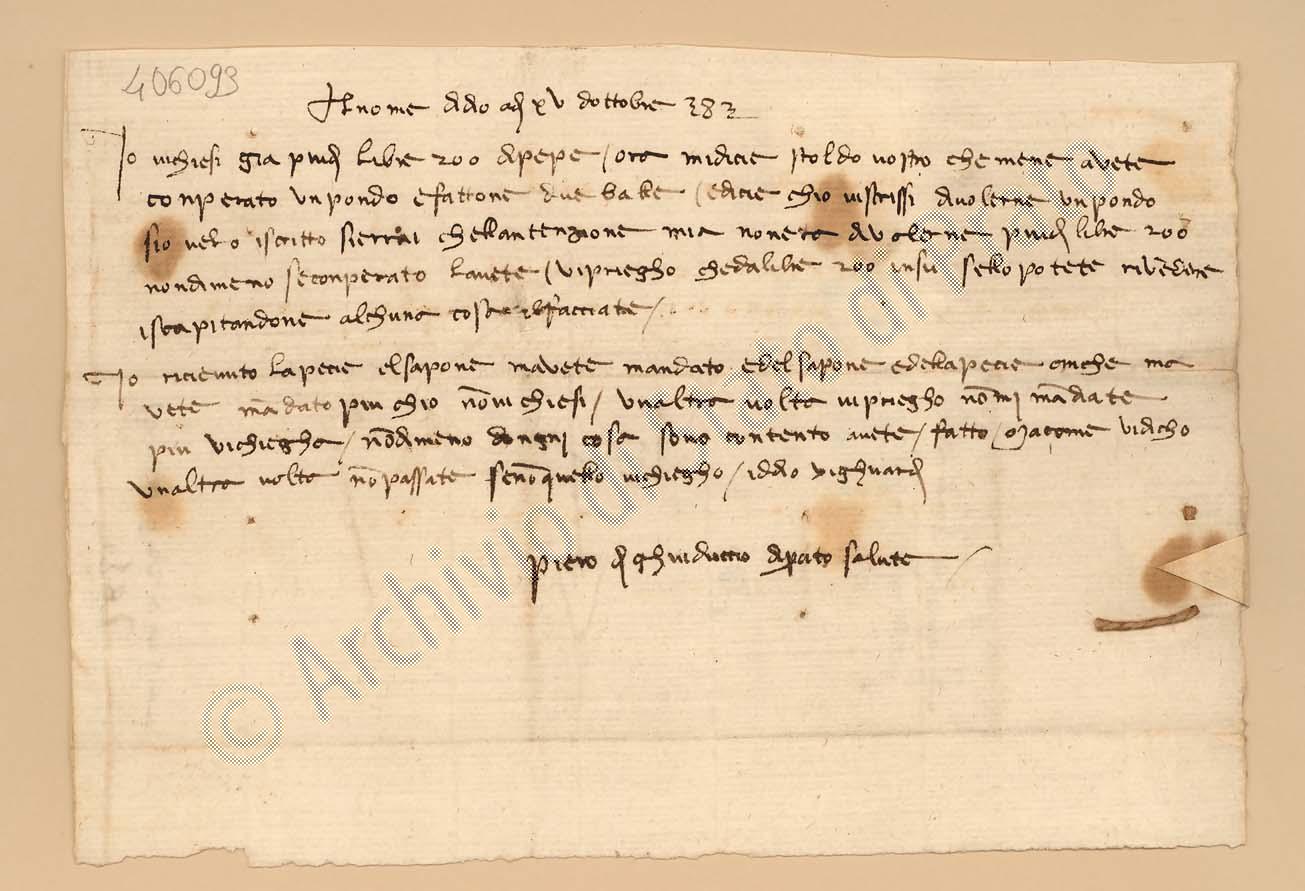 406093
Al nome di dio adi xv dottobre 383
Io vichiesi gia piu di libre 200 di pepe / ora midicie stoldo vostro che mene avete
conperato un pondo e fattone due balle / e dicie chio viscrissi di volerne un pondo
sio velo iscritto si errai chella ntenzione mia nonera di volerne piu di libre 200
nondimeno se conperato lavete / vi priegho che da libre 200 insu sello potete rivendere
iscapitandone alchuna cosa il facciate /
Io ricievuto la pecie el sapone mavete mandato e del sapone e della pecie anche ma
vete mandato piu chio non vi chiesi / unaltra volta vi priegho non mi mandiate
piu vi chiegha / nondimeno dongni cosa sono contento avete / fatto / ma come vi dicho
unaltra volta non passate senon quello vichiegho / iddio vi ghuardi
piero di ghuiduccio di prato salute
© Archivio di Stato di Prato